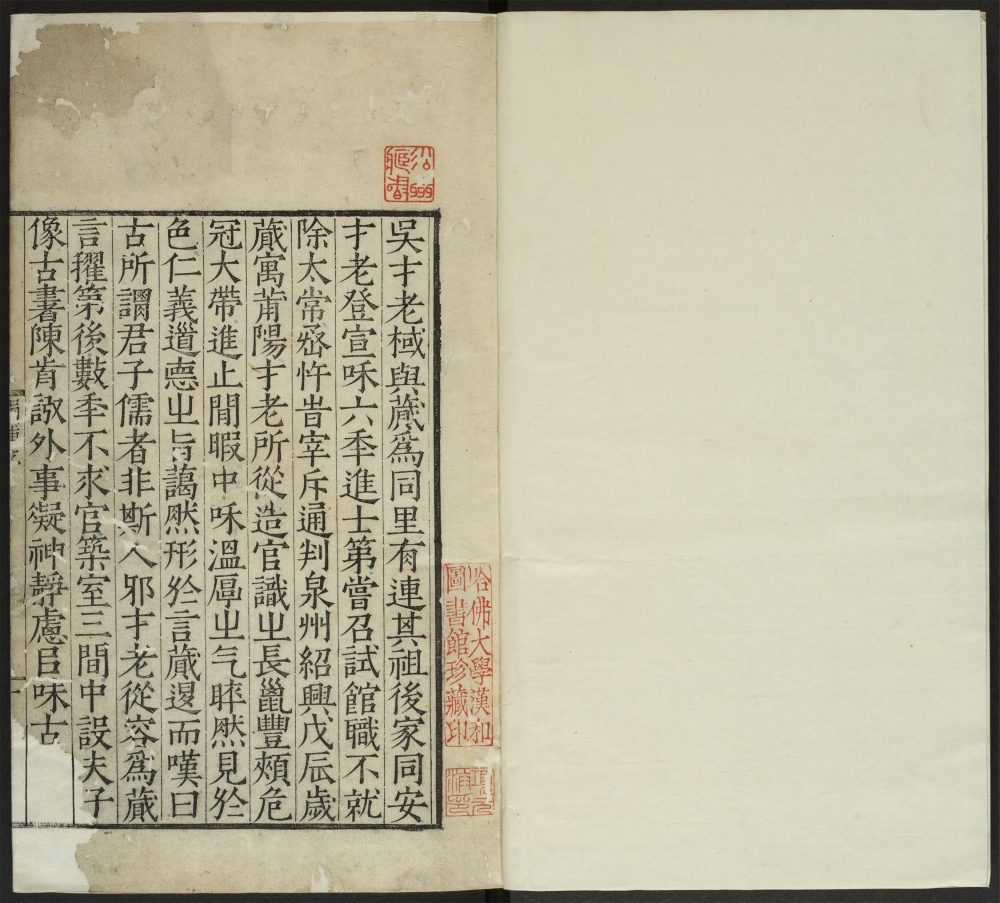 吳才老棫與蕆爲同里有連其祖後家同安
才老登宣咊六秊進士第嘗召試館職不就
除太常丞忤旹宰斥通判泉州紹興戊辰歲
蕆寓莆陽才老所從造官識㞢長鬣豐頰危
冠大帶進止閒暇中咊溫厚㞢气睟然見於
色仁義道悳㞢旨藹然形於言蕆退而嘆曰
古所謂君子儒者非斯人邪才老從容爲蕆
言擢第後數秊不求官築室三間中設夫子
像古書陳歬謝外事凝神靜慮㠯味古
哈佛大學漢和
圖書館珍藏印